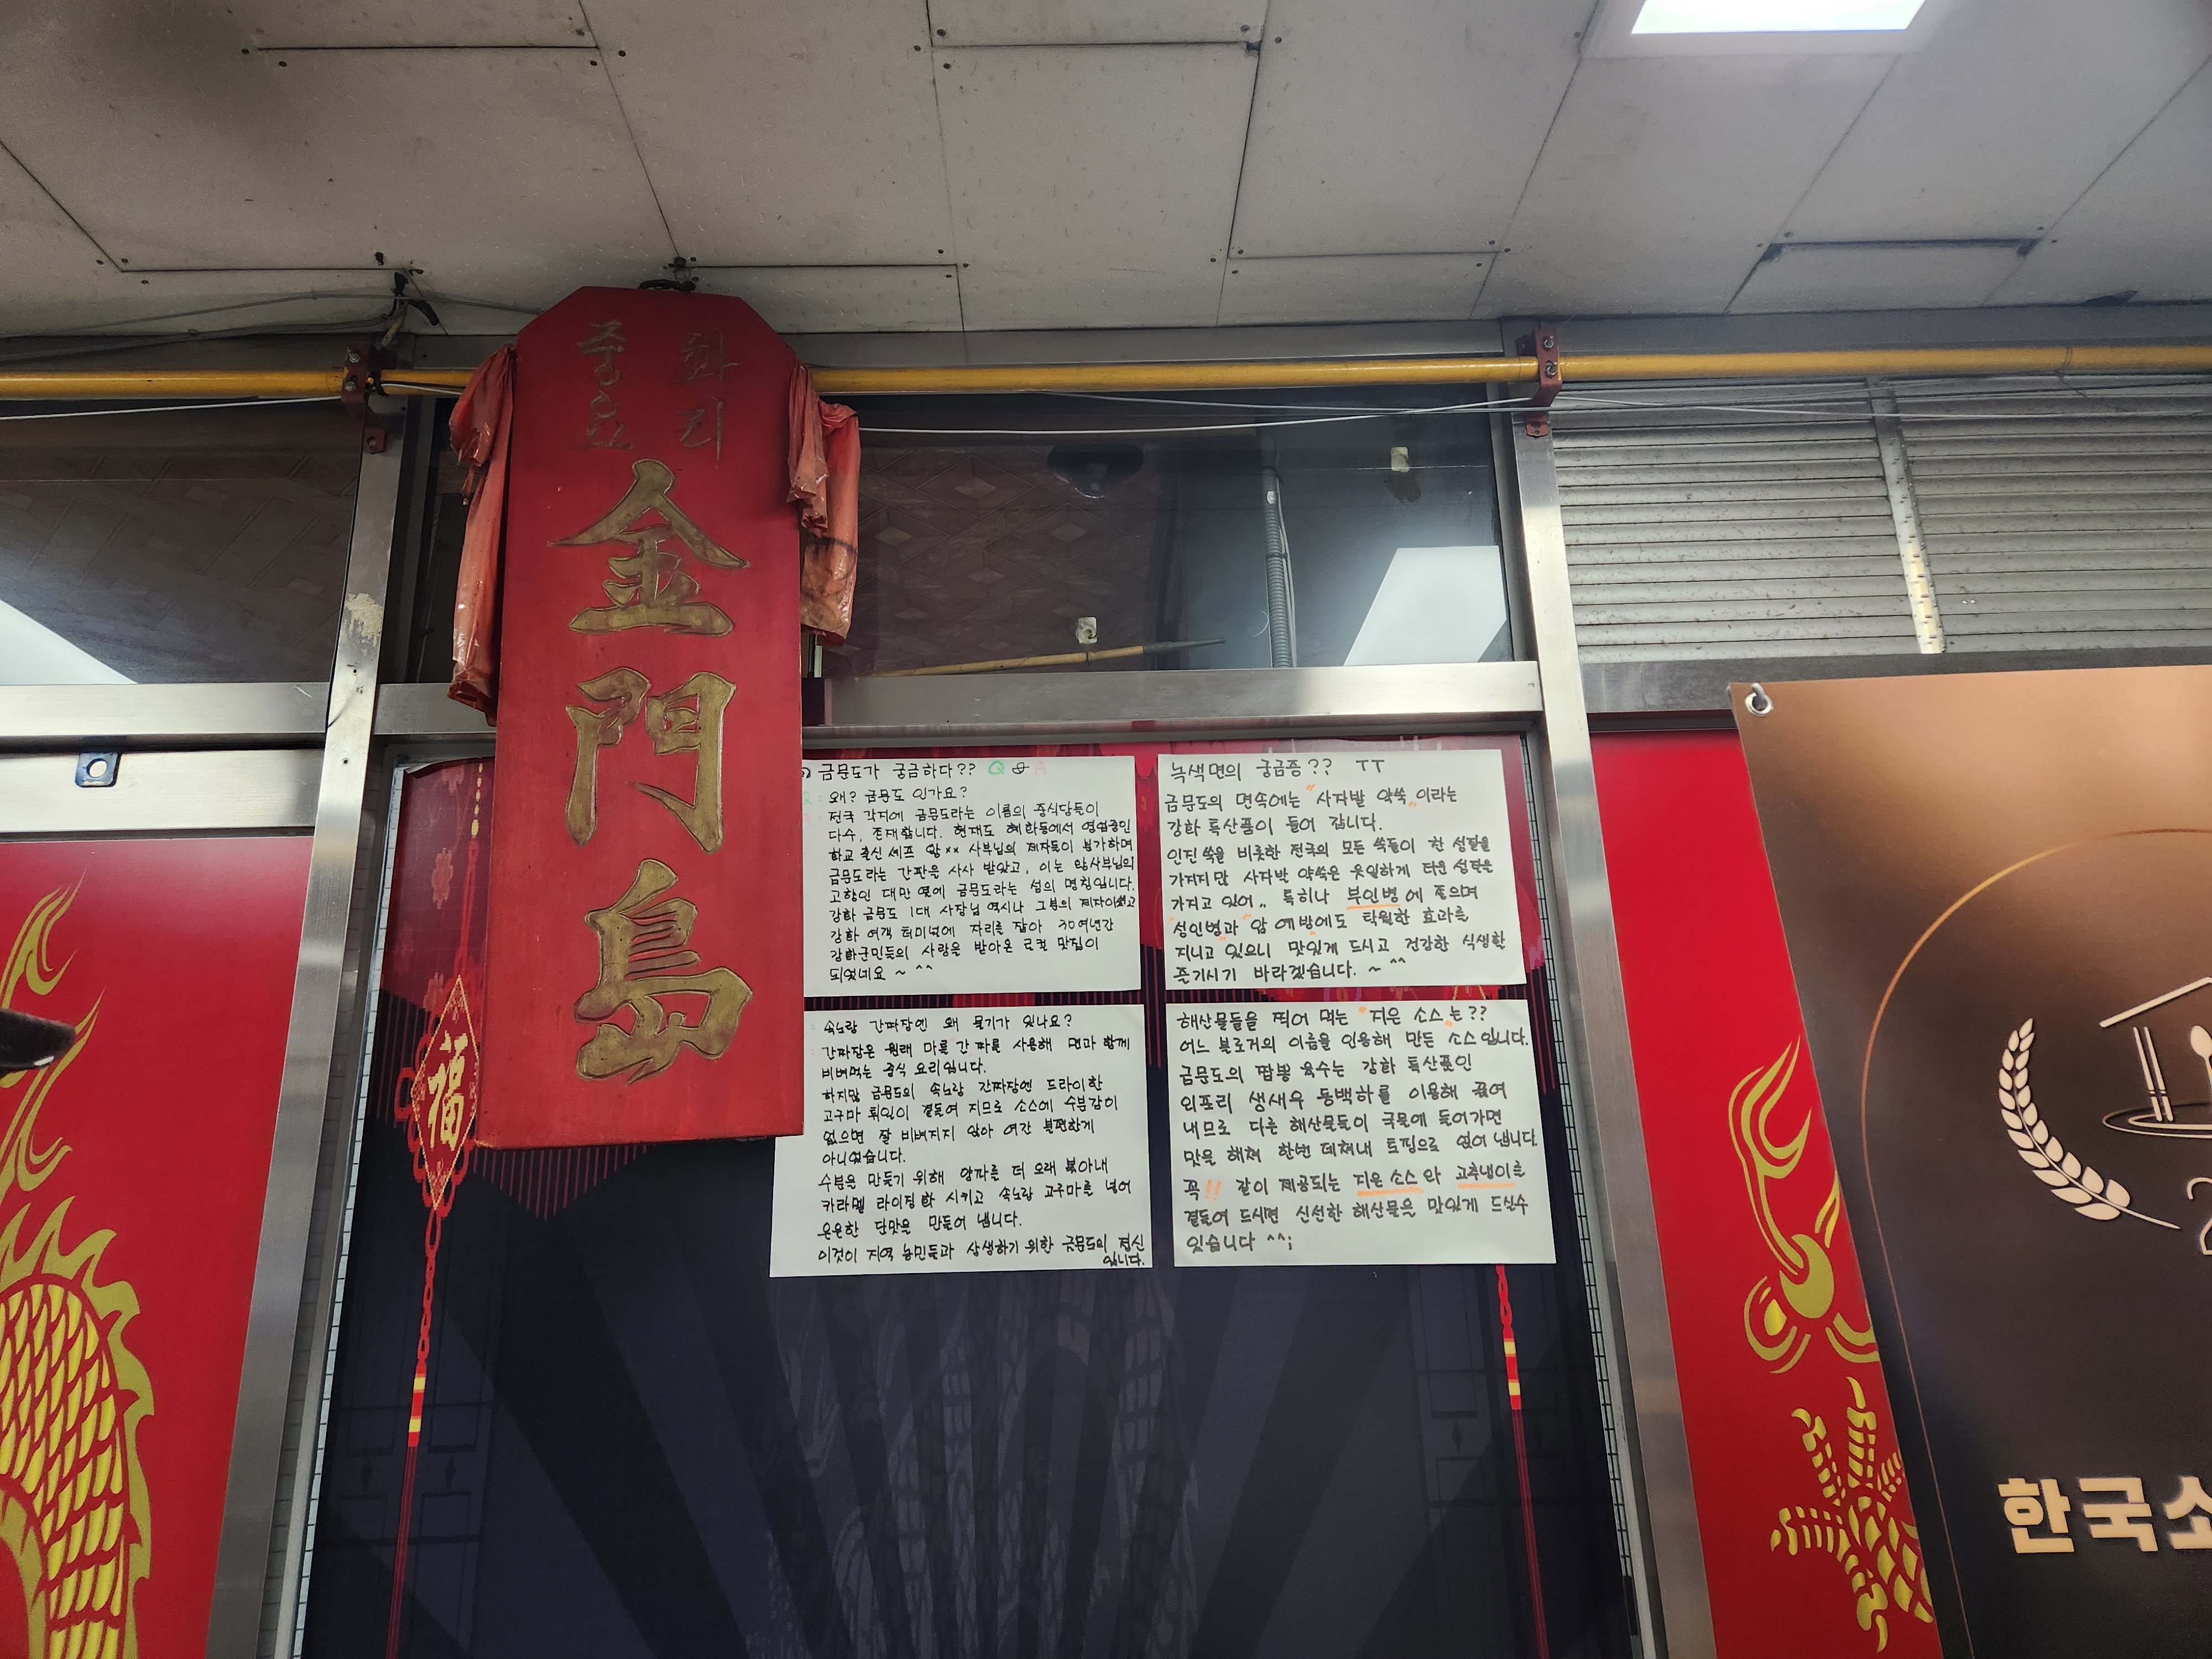 중화
요리
金門島
福
금문도가 궁금하다?? Q & A
왜? 금문도 인가요?
전국 각지에 금문도라는 이름의 중식당들이
다수, 존재합니다. 현재도 혜화동에서 영업중인
학교 출신 셰프 왕×× 사부님의 제자들이 불가하며
금문도라는 간판을 사사 받았고, 이는 왕사부님의
고향인 대만 옆에 금문도라는 섬의 명칭입니다.
강화 금문도 1대 사장님 역시나 그분의 제자이셨고
강화 여객 터미널에 자리를 잡아 30여년간
강화군민들의 사랑을 받아온 로컬 맛집이
되었네요 ~ ^^
녹색면의 궁금증?? ㅜㅜ
금문도의 면속에는 "사자발 약쑥" 이라는
강화 특산품이 들어 갑니다.
인진쑥을 비롯한 전국의 모든 쑥들이 찬 성질을
가지지만 사자발 약쑥은 유일하게 더운 성질을
가지고 있어.. 특히나 부인병에 좋으며
"성인병과" 암 예방에도 탁월한 효과를
지니고 있으니 맛있게 드시고 건강한 식생활
즐기시기 바라겠습니다. ~ ^^
속노랑 간짜장엔 왜 물기가 있나요?
간짜장은 원래 마를간 짜를 사용해 면과 함께
비벼먹는 중식 요리입니다.
하지만 금문도의 속노랑 간짜장엔 드라이한
고구마 튀김이 곁들여 지므로 소스에 수분감이
없으면 잘 비벼지지 않아 여간 불편한게
아니였습니다.
수분을 만들기 위해 양파를 더 오래 볶아내
카라멜 라이징화 시키고 속노랑 고구마를 넣어
은은한 단맛을 만들어 냅니다.
이것이 지역 농민들과 상생하기 위한 금문도의 정신
입니다.
해산물들을 찍어 먹는 "지은 소스"는??
어느 블로거의 이름을 인용해 만든 소스입니다.
금문도의 짬뽕 육수는 강화 특산품인
인포리 생새우 동백하를 이용해 끓여
내므로 다른 해산물들이 국물에 들어가면
맛을 해쳐 한번 데쳐내 토핑으로 얹어 냅니다.
꼭!! 같이 제공되는 지은 소스와 고추냉이를
곁들여 드시면 신선한 해산물을 맛있게 드실수
있습니다 ^^;
한국소